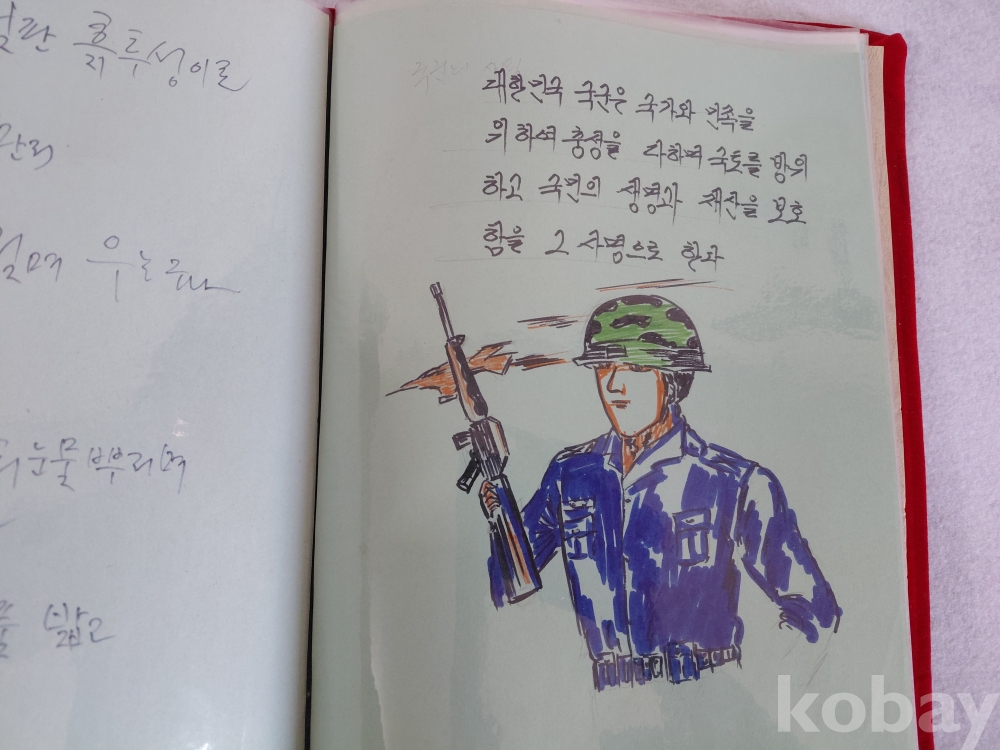 흙투성이로
관리
우는
눈물 뿌리며
밟고
대한민국 국군은 국가와 민족을
위하여 충성을 다하며 국토를 방위
하고 국민의 생명과 재산을 보호
함을 그 사명으로 한다
kobay